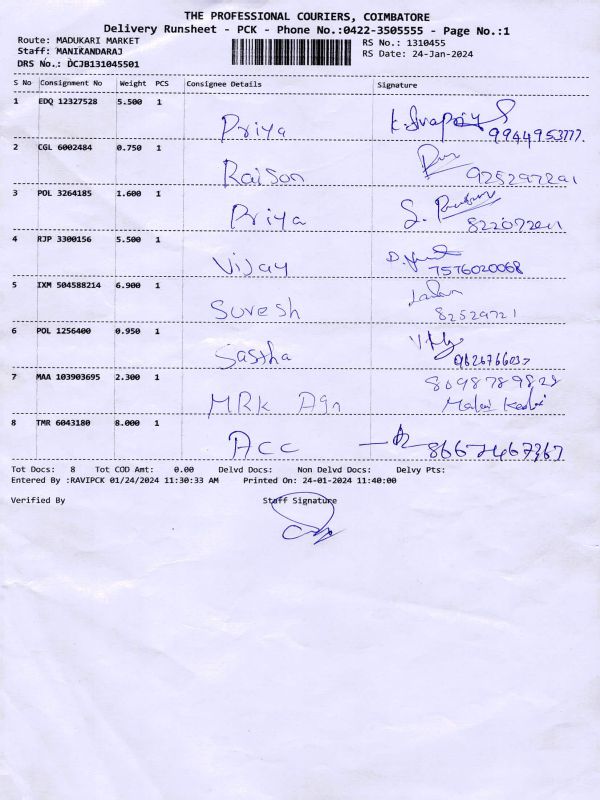 THE PROFESSIONAL COURIERS, COIMBATORE
Delivery Runsheet - PCK - Phone No.:0422-3505555 - Page No.:1
Route: MADUKARI MARKET RS No.: 1310455
Staff: MANIKANDARAJ RS Date: 24-Jan-2024
DRS No.: DCJB131045501
S No Consignment No Weight PCS Consignee Details Signature
1 EDQ 12327528 5.500 1
Priya 9944953777.
2 CGL 6002484 0.750 1
Raison
3 POL 3264185 1.600 1
Priya
4 RJP 3300156 5.500 1
Vijay 7576020068
5 IXM 504588214 6.900 1
Suresh 82529721
6 POL 1256400 0.950 1
Sastha
7 MAA 103903695 2.300 1
MRK Agn
8 TMR 6043180 8.000 1
Acc 8667467367
Tot Docs: 8 Tot COD Amt: 0.00 Delvd Docs: Non Delvd Docs: Delvy Pts:
Entered By :RAVIPCK 01/24/2024 11:30:33 AM Printed On: 24-01-2024 11:40:00
Verified By Staff Signature